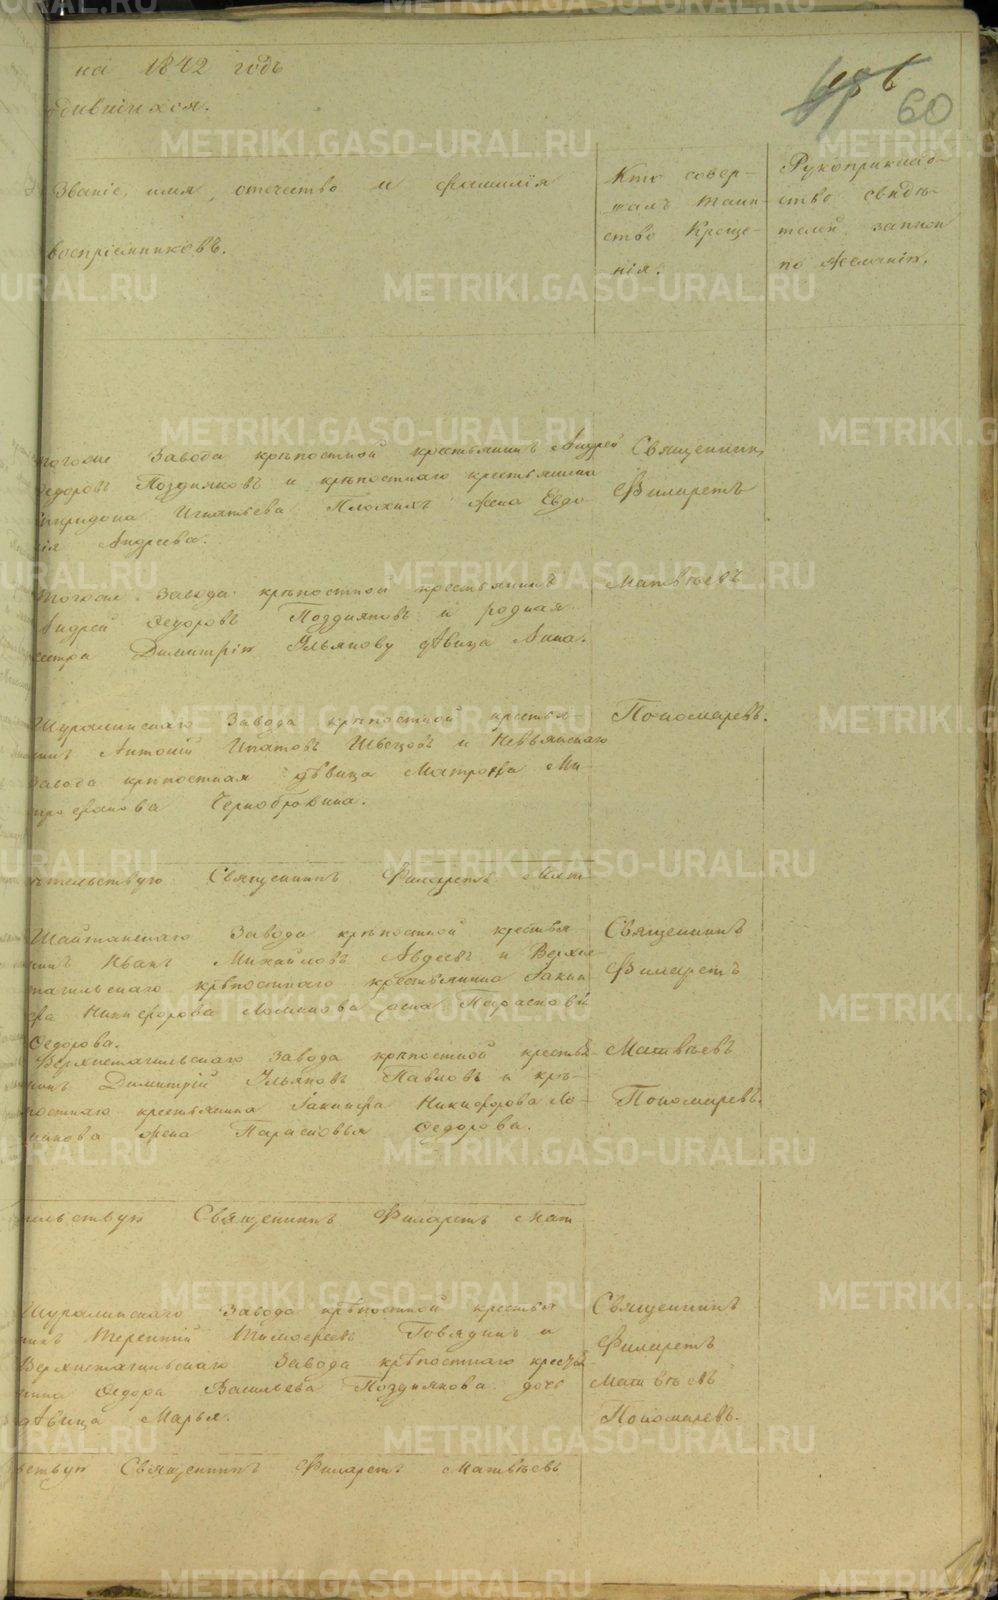 на 1842 годъ
60
дившихся.
Званіе, имя, отечество и фамилія
воспріемниковъ.
Кто совер-
шалъ Таин-
ство Креще-
нія.
Рукоприклад-
ство свидѣ-
телей записи
по желанію.
тогоже Завода крѣпостной крестьянинъ Андрей
Ѳедоровъ Поздняковъ и крѣпостнаго крестьянина
Спиридона Игнатьева Плохихъ жена Евдо
кія Андреева.
Священникъ
Филаретъ
Матвѣевъ
Пономаревъ.
Тогоже Завода крѣпостной крестьянинъ
Андрей Ѳедоровъ Поздняковъ и родная
сестра Димитрію Ульянову дѣвица Анна.
Шуралинскаго Завода крѣпостной крестья
нинъ Антоній Ипатовъ Швецовъ и Невьянскаго
Завода крѣпостная дѣвица Матрона Ми-
трофанова Чернобровина.
тельствую Священникъ Филаретъ Мат
Шайтанскаго Завода крѣпостной крестья
нинъ Иванъ Михайловъ Авдеевъ и Верхне
тагильскаго крѣпостнаго крестьянина Іакин
фа Никифорова жена Парасковья
Ѳедорова.
Верхнетагильскаго Завода крѣпостной крестья-
нинъ Димитрій Ульяновъ Павловъ и крѣ-
постнаго крестьянина Іакинфа Никифорова Ло-
жена Парасковья Ѳедорова.
Священникъ
Филаретъ
Матвѣевъ
Пономаревъ.
тельствую Священникъ Филаретъ Мат
Шуралинскаго Завода крѣпостной крестья
нинъ Терентій Тимофеевъ Говядинъ и
Верхнетагильскаго Завода крѣпостнаго крестья-
нина Ѳедора Васильева Позднякова дочь
дѣвица Марья.
Священникъ
Филаретъ
Матвѣевъ
Пономаревъ.
ствую Священникъ Филаретъ Матвѣевъ
METRIKI.GASO-URAL.RU